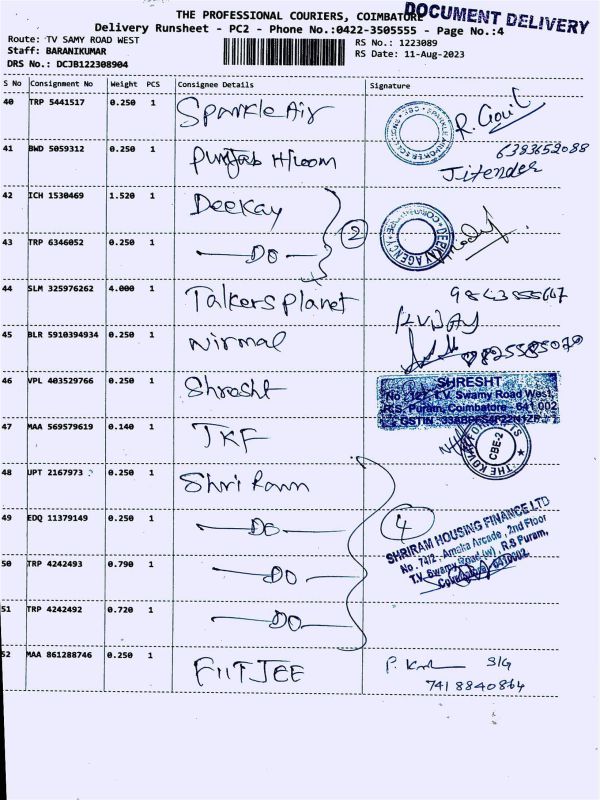 THE PROFESSIONAL COURIERS, COIMBATORE
DOCUMENT DELIVERY
Delivery Runsheet - PC2 - Phone No.:0422-3505555 - Page No.:4
Route: TV SAMY ROAD WEST
RS No.: 1223089
Staff: BARANIKUMAR
RS Date: 11-Aug-2023
DRS No.: DCJB122308904
S No Consignment No Weight PCS Consignee Details Signature
40 TRP 5441517 0.250 1 Sparkle Air
41 BWD 5059312 0.250 1 Punjab H/loom 6383652088
Jitender
42 ICH 1530469 1.520 1 Deekay
2
DEEKAY AGENCY
43 TRP 6346052 0.250 1 —DO—
44 SLM 325976262 4.000 1 Talkers planet
45 BLR 5910394934 0.250 1 Nirmal
46 VPL 403529766 0.250 1 Shresht
SHRESHT
No : 127, T.V. Swamy Road West,
R.S. Puram, Coimbatore - 641 002
GSTIN :
47 MAA 569579619 0.140 1 TKF
CBE-2
48 UPT 2167973 0.250 1 Shri Ram
4
49 EDQ 11379149 0.250 1 —DO—
SHRIRAM HOUSING FINANCE LTD
No. 74/2, Amaka Arcade, 2nd Floor
T.V. Swamy Road (w), R.S Puram,
50 TRP 4242493 0.790 1 —DO—
51 TRP 4242492 0.720 1 —DO—
52 MAA 861288746 0.250 1 FIITJEE
7418840864